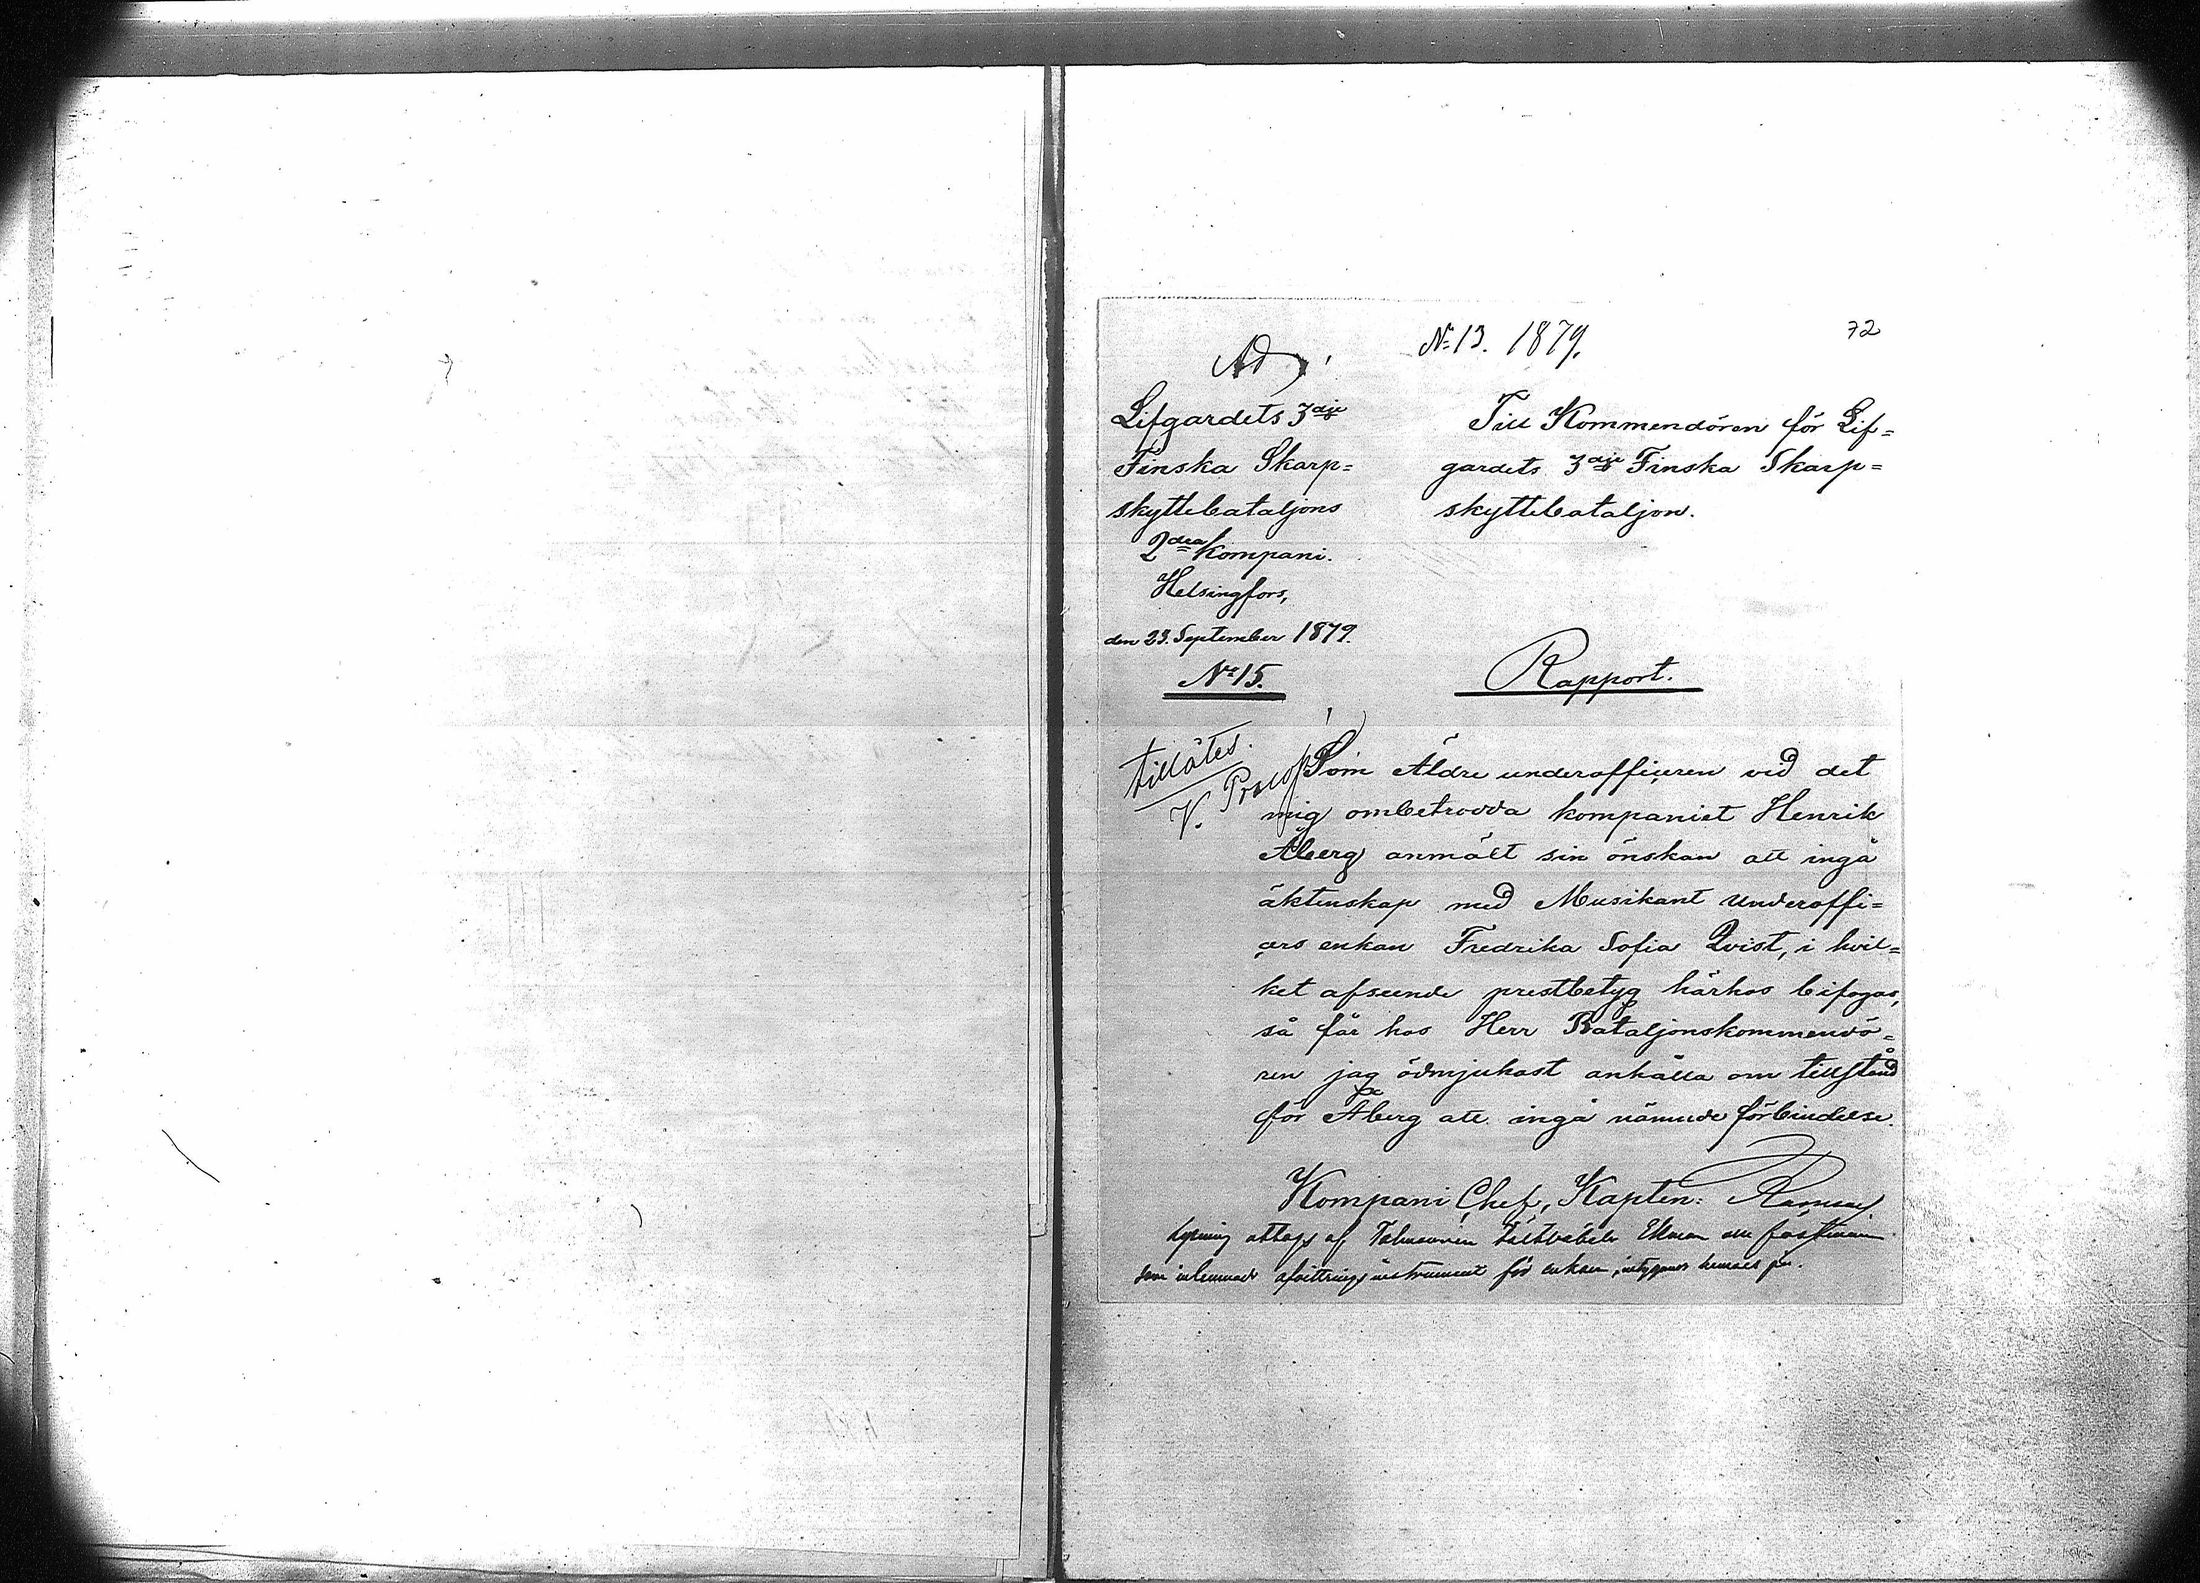 72
No 13. 1879.
Ad
Lifgardets 3dje
Finska Skarp=
skyttebataljons
2dra Kompani.
Helsingfors,
den 23. September 1879.
No 15.
Till Kommendören för Lif=
gardets 3dje Finska Skarp=
skyttebataljon.
Rapport.
tillåtes.
V. Procopé
Som Äldre underofficeren vid det
mig ombetrodda kompaniet Henrik
Åberg anmält sin önskan att ingå
äktenskap med Musikant underoffi=
cers enkan Fredrika Sofia Qvist, i hvil=
ket afseende prestbetyg härhos bifogas,
så får hos Herr Bataljonskommendö=
ren jag ödmjukast anhålla om tillstånd
för Åberg att ingå nämnde förbindelse.
Kompani Chef, Kapten: Ramsay
Lysning uttogs af Talmannen fältväbeln Ekman
som inlemnade afvittrings instrument för enkan